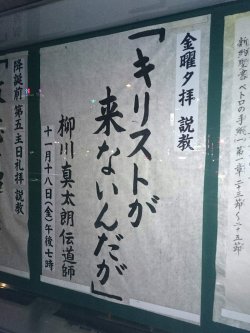 新約聖書 ペトロの手紙
金曜夕拝 説教
「キリストが
来ないんだが」
柳川 真太朗 伝道師
十一月十八日(金)午後七時
降誕前 第五主日礼拝 説教